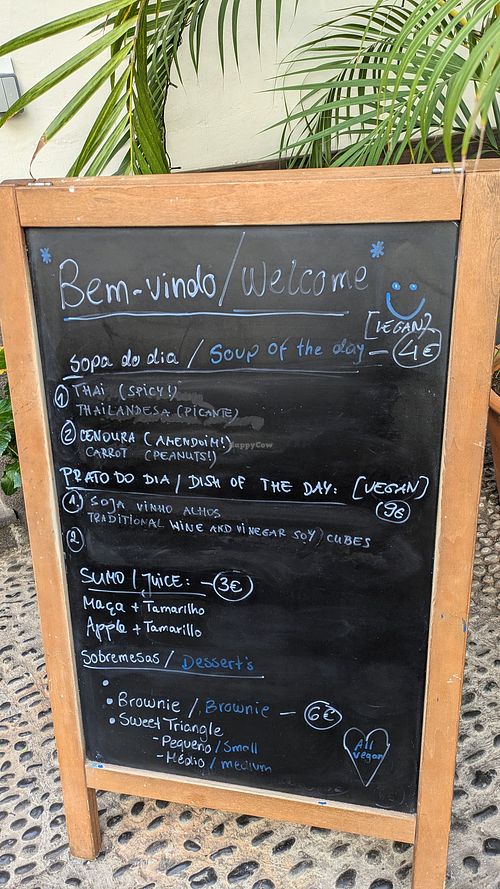 * Bem-vindo / Welcome *
[VEGAN]
Sopa do dia / Soup of the day — 4€
1 THAI (SPICY!)
THAILANDESA (PICANTE)
2 CENOURA (AMENDOIM!)
CARROT (PEANUTS!)
PRATO DO DIA / DISH OF THE DAY: [VEGAN]
9€
1. SOJA VINHO ALHOS
TRADITIONAL WINE AND VINEGAR SOY) CUBES
2
SUMO / JUICE: — 3€
Maça + Tamarilho
Apple + Tamarillo
Sobremesas / Dessert's
•
• Brownie / Brownie — 6€
• Sweet Triangle
- Pequeno / Small
- Médio / medium
All vegan
HappyCow